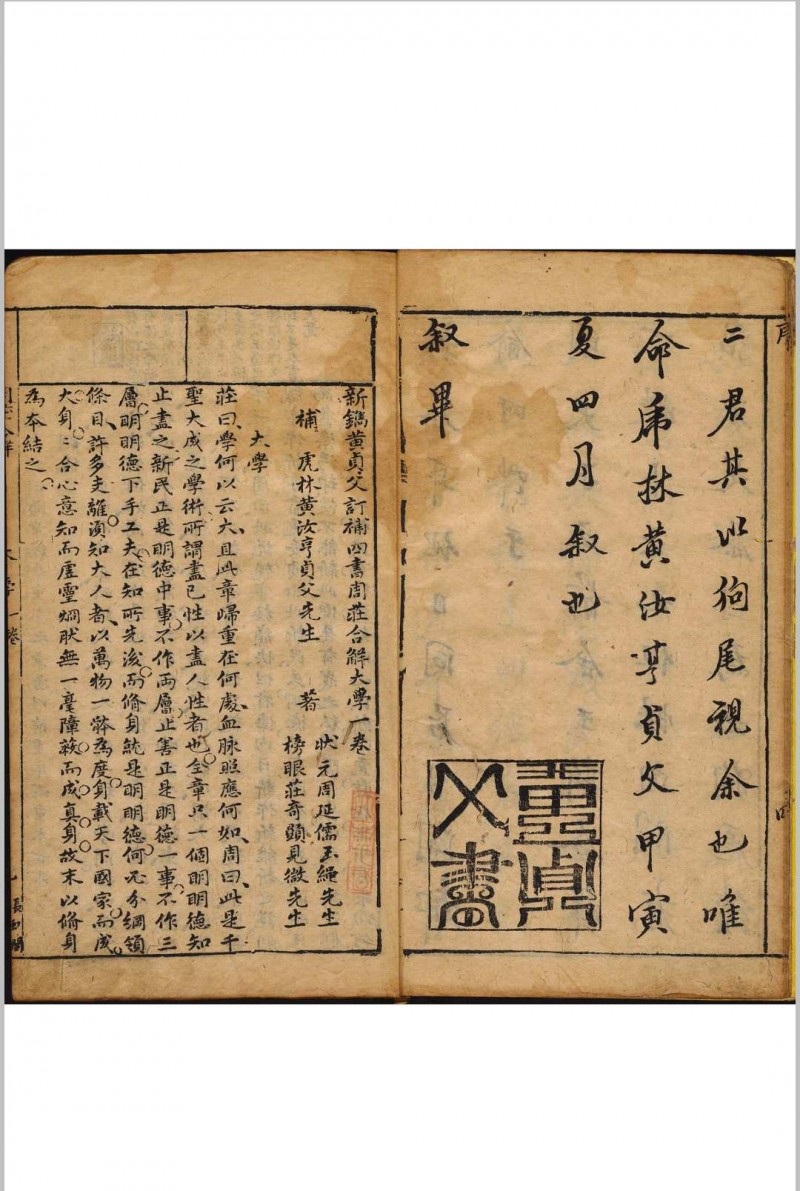 二君其以狗尾視余也唯
命虎林黃汝亨貞父甲寅
夏四月叙也
叙畢
黃貞父書
新鐫黃貞父訂補四書周莊合解大學一卷
狀元周延儒玉繩先生
榜眼莊奇顕見微先生
著
補虎林黃汝亨貞父先生
大學
莊曰學何以云大且此章歸重在何處血脉照應何如周曰此是千
聖大成之學術所謂盡己性以盡人性者也全章只一個明明德知
止盡之新民正是明德中事不作兩層止善正是明德一事不作三
層明明德下手工夫在知所先後而脩身就是明明德何必分綱領
條目許多支離須知大人者以萬物一體為度身載天下國家而成
大身ミ合心意知而虛靈烱肰無一毫障蔽而成真身故末以脩身
為本結之
大學一卷